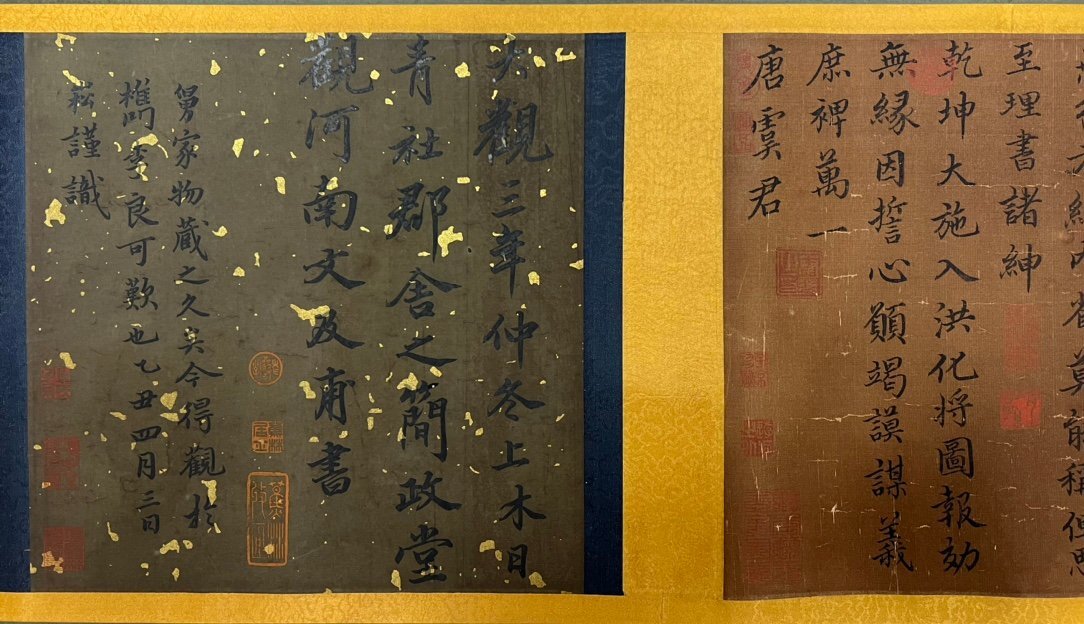 莫能稱
至理書諸紳
乾坤大施入洪化將圖報効
無緣因誓心願竭謨謀義
庶裨萬一
唐虞君
大觀三年仲冬上木日
青社郡舍之簡政堂
觀河南文及甫書
舅家物藏之久矣今得觀於
檇李良可歎也乙丑四月三日
崧謹識